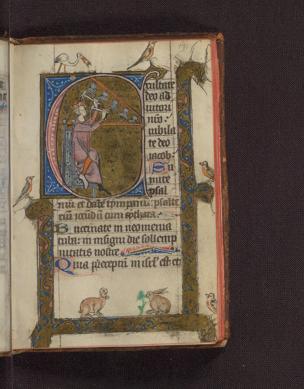 Exultate
deo ad
iutori
nostro
iubila
te deo
iacob.
Su
mite
psal
mum et date tympanum: psalte
rium iocundum cum cythara.
Buccinate in neomenia
tuba: in insigni die sollemp
nitatis nostre
Quia preceptum in israel est: et